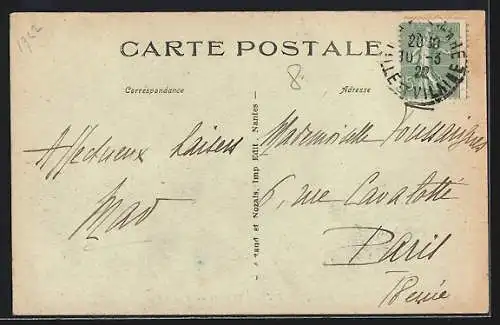 1922
CARTE POSTALE
8.
Correspondance
Adresse
20 30
10 - 3
22
ILLE-ET-VILAINE
Affectueux baisers
Mad
et Nozais, Imp. Edit. Nantes
Mademoiselle
6, rue Cavalotti
Paris
18eme